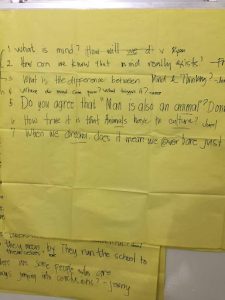 1 what is mind? How will we dt v Ryan
2. How can we know that mind really exists? - Fr
3. What is the difference between Mind & Thinking? - Jan
4 Where do mind come from? What trigger it?
5 Do you agree that "Man is also an animal"? Donn
6 How true it is that Animals have no culture? Jomel
7 When we dream, does it mean we ever bare just
they mean, by They run the school to
themselves? we
are some people who are
jumping into conclusions? - Jenny